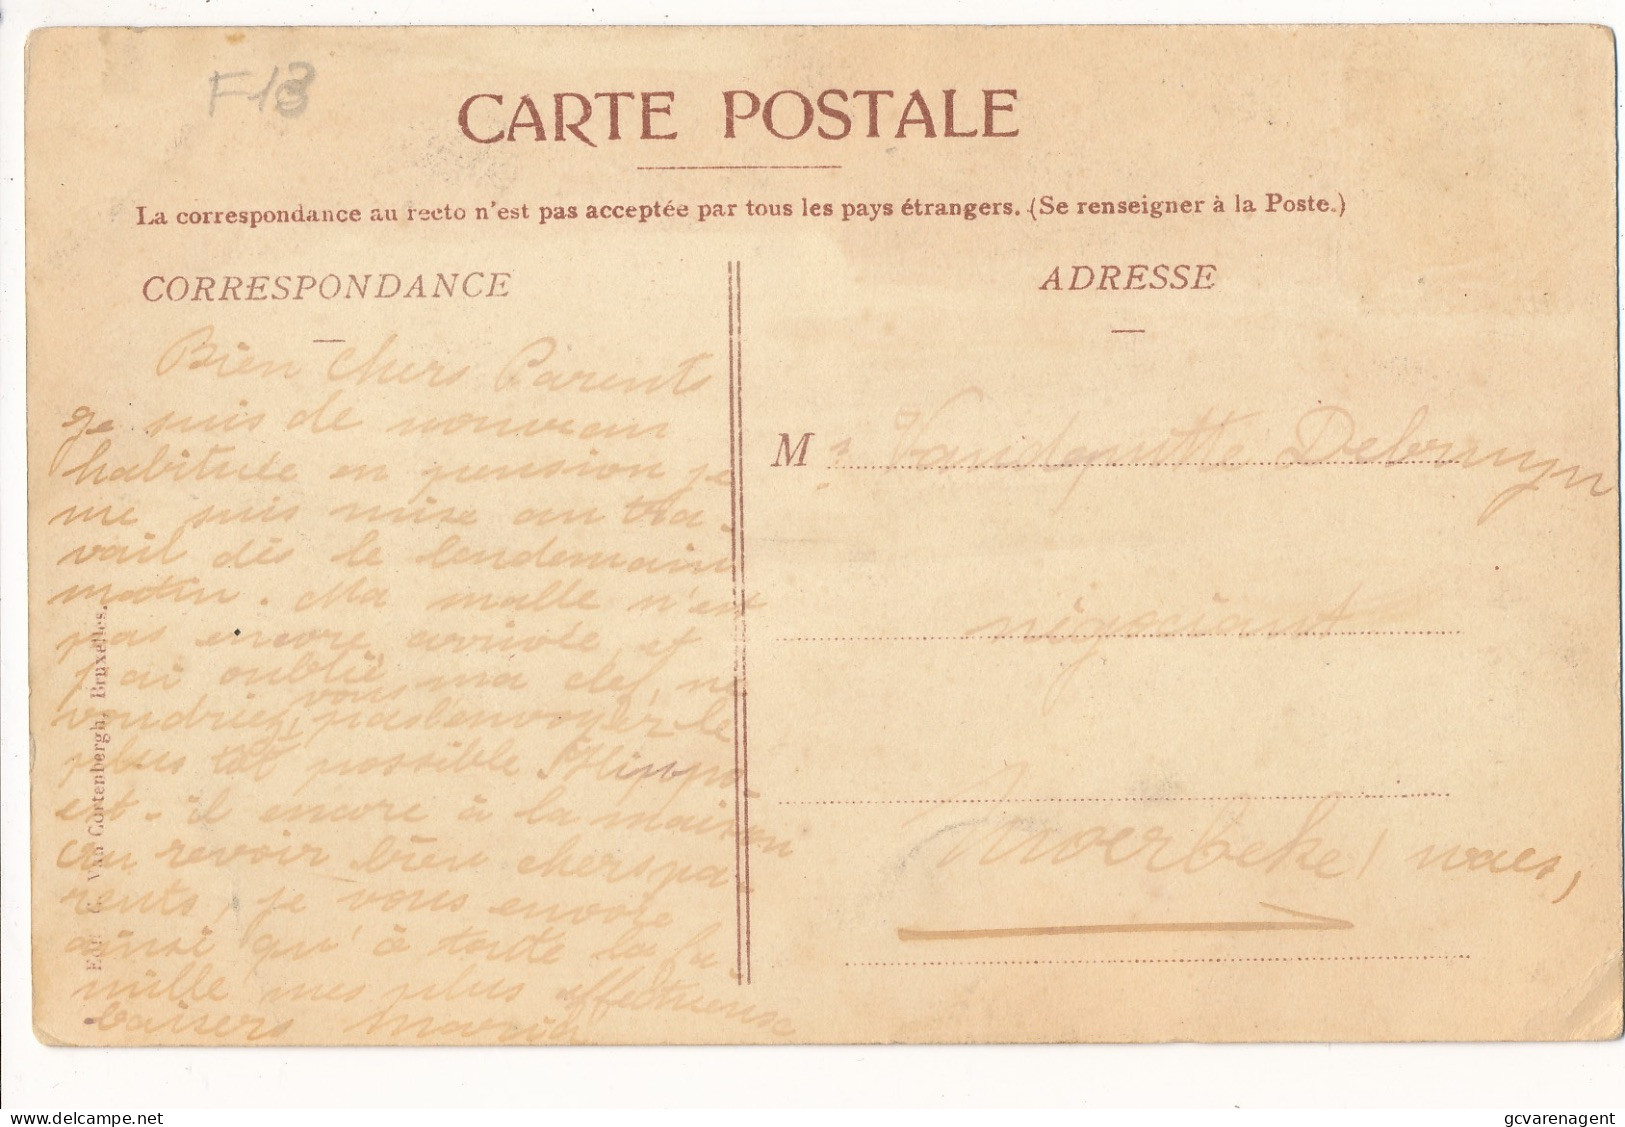 F18
CARTE POSTALE
La correspondance au recto n'est pas acceptée par tous les pays étrangers. (Se renseigner à la Poste.)
CORRESPONDANCE
Bien chers Parents
je suis de nouveau
habituée en pension je
me suis mise au tra-
vail dès le lendemain
matin. Ma malle n'est
pas encore arrivée et
j'ai oublié ma clef, ne
voudriez vous pas l'envoyer le
plus tôt possible Hippo.
est-il encore à la maison
au revoir bien chers pa-
rents, je vous envoie
ainsi qu'à toute la fa-
mille mes plus affectueux
baisers Maria
Edit. C. Van Cortenbergh, Bruxelles.
ADRESSE
Mr Vandeputte Debruyn
négociant
Moerbeke / waes,
delcampe.net
gcvarenagent